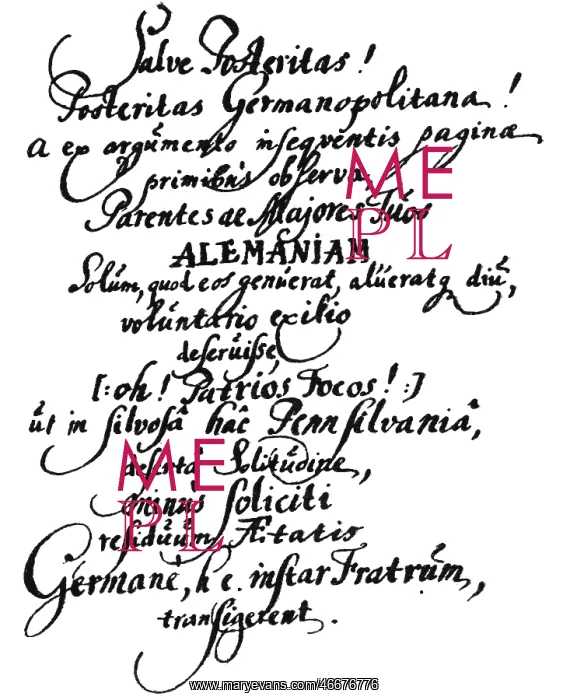 Salve Posteritas!
Posteritas Germanopolitana!
a ex argumento insequentis paginæ
primitus observa,
Parentes ac Majores Tuos
ALEMANIAM
Solum, quod eos genuerat, alueratq diu,
voluntario exilio
deseruisse,
[:oh! Patrios Focos!:]
ut in silvosâ hâc Pennsilvaniâ,
desertâ Solitudine,
minus soliciti
residuum Ætatis
Germane, h. e. instar Fratrum,
transigerent.
ME
PL
ME
PL
www.maryevans.com/46676776